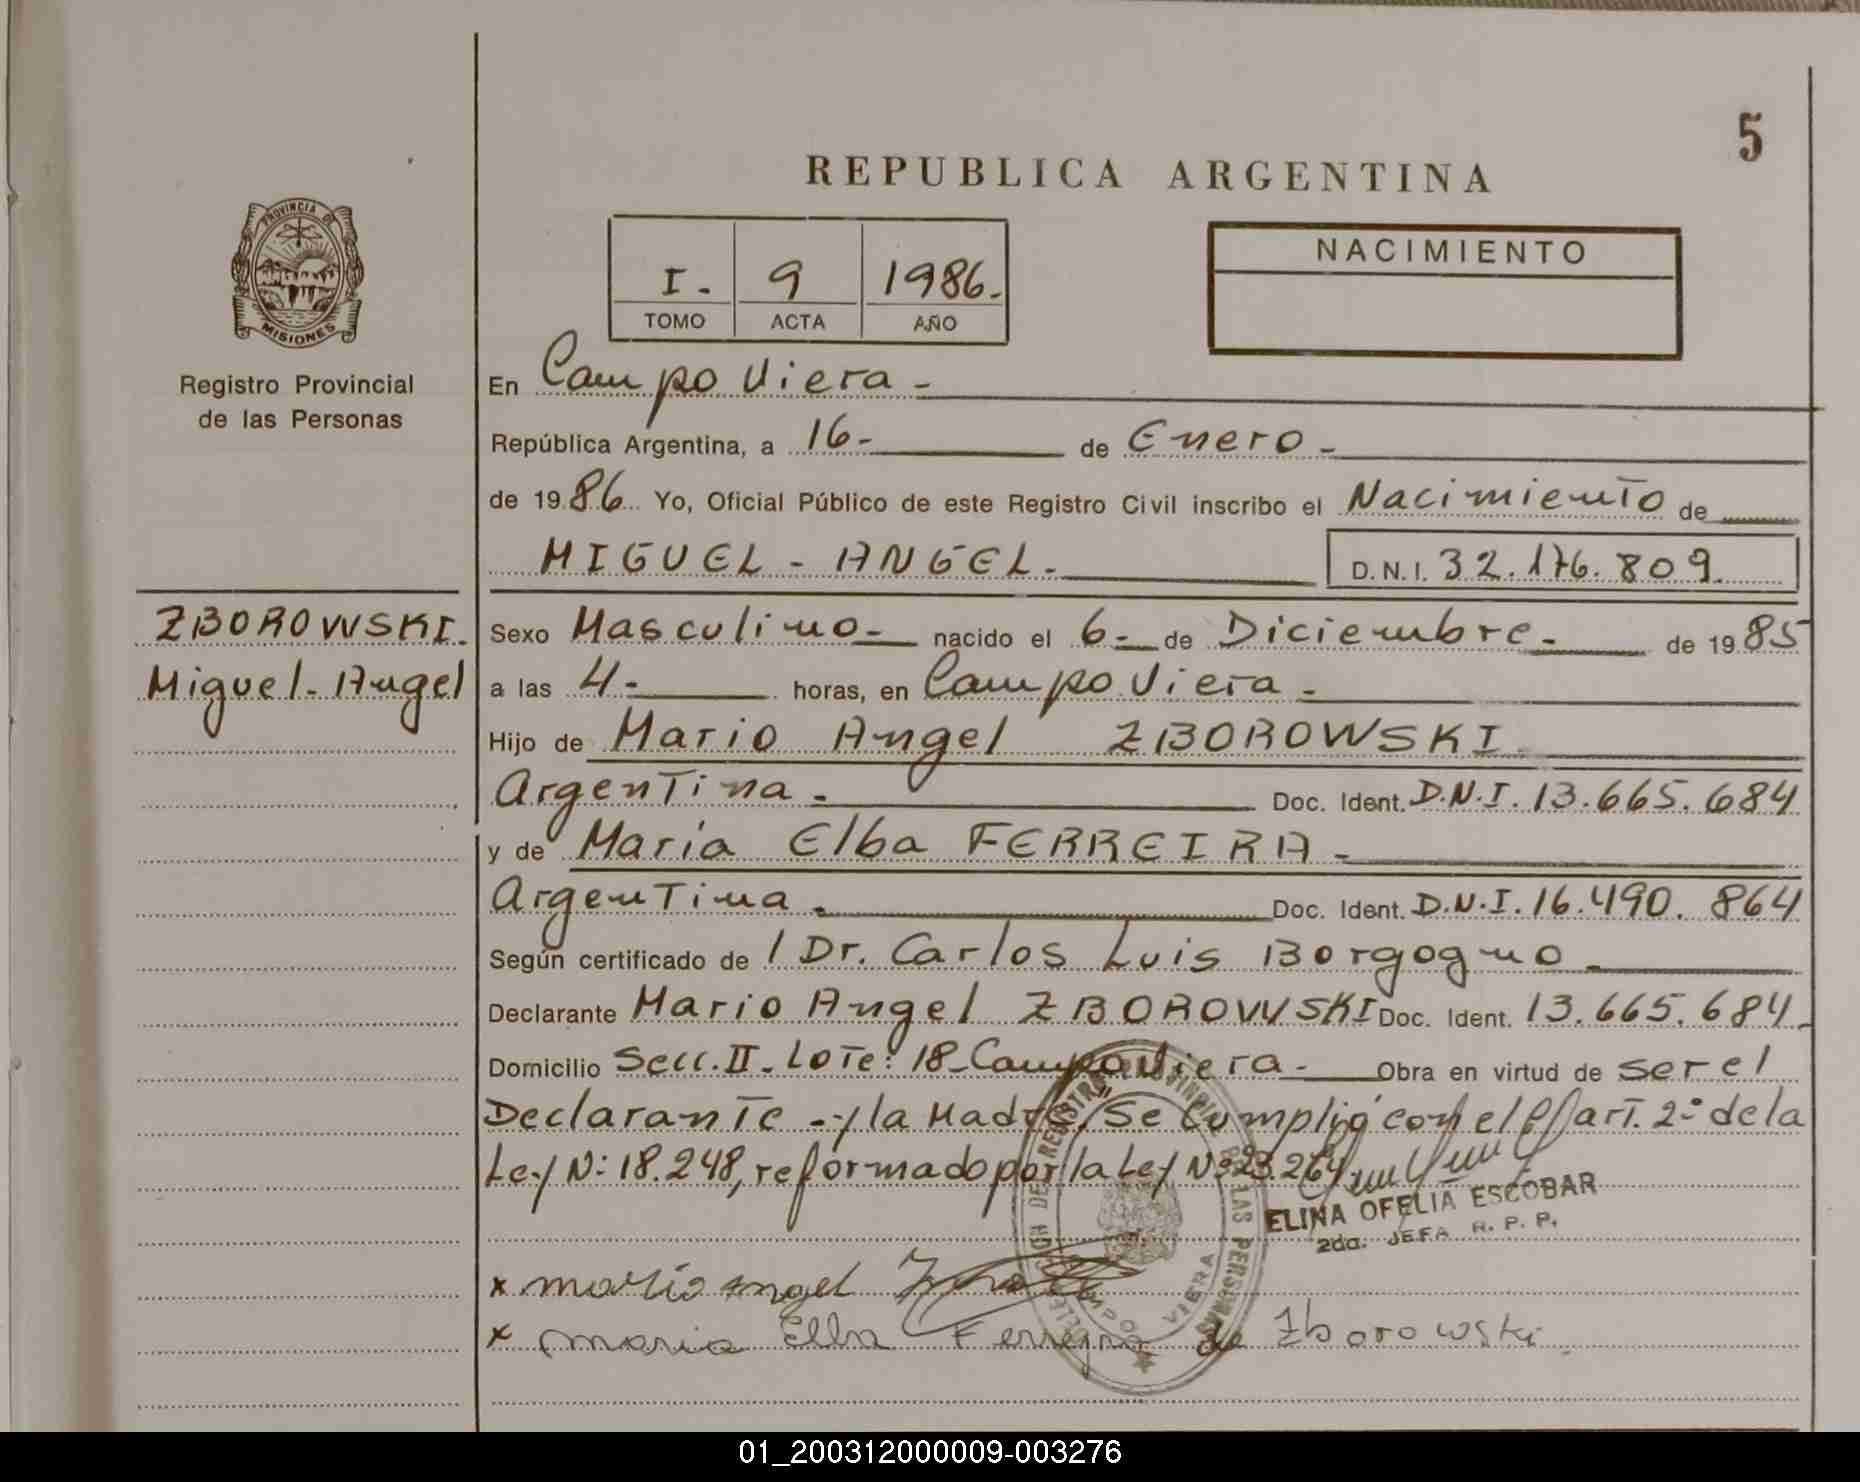 5
REPUBLICA ARGENTINA
PROVINCIA DE
MISIONES
Registro Provincial
de las Personas
I. 9 1986.
TOMO ACTA AÑO
NACIMIENTO
En Campo Viera -
República Argentina, a 16- de Enero -
de 1986 Yo, Oficial Público de este Registro Civil inscribo el Nacimiento de
MIGUEL - ANGEL - D.N.I. 32.176.809.
ZBOROWSKI.
Miguel - Angel
Sexo Masculino - nacido el 6 - de Diciembre - de 1985
a las 4 - horas, en Campo Viera -
Hijo de Mario Angel ZBOROWSKI.
Argentina - Doc. Ident. D.N.I. 13.665.684
y de María Elba FERREIRA -
Argentina - Doc. Ident. D.N.I. 16.490.864
Según certificado de / Dr. Carlos Luis Borgogno -
Declarante Mario Angel ZBOROWSKI Doc. Ident. 13.665.684.
Domicilio Secc. II - Lote: 18 - Campo Viera - Obra en virtud de ser el
Declarante - y la Madre "Se cumplió con el art. 2º de la
Ley Nº 18.248, reformado por la Ley Nº 23.264
ELINA OFELIA ESCOBAR
2da. JEFA R. P. P.
x mario angel
x maria Elba Ferreira de Zborowski
01_200312000009-003276